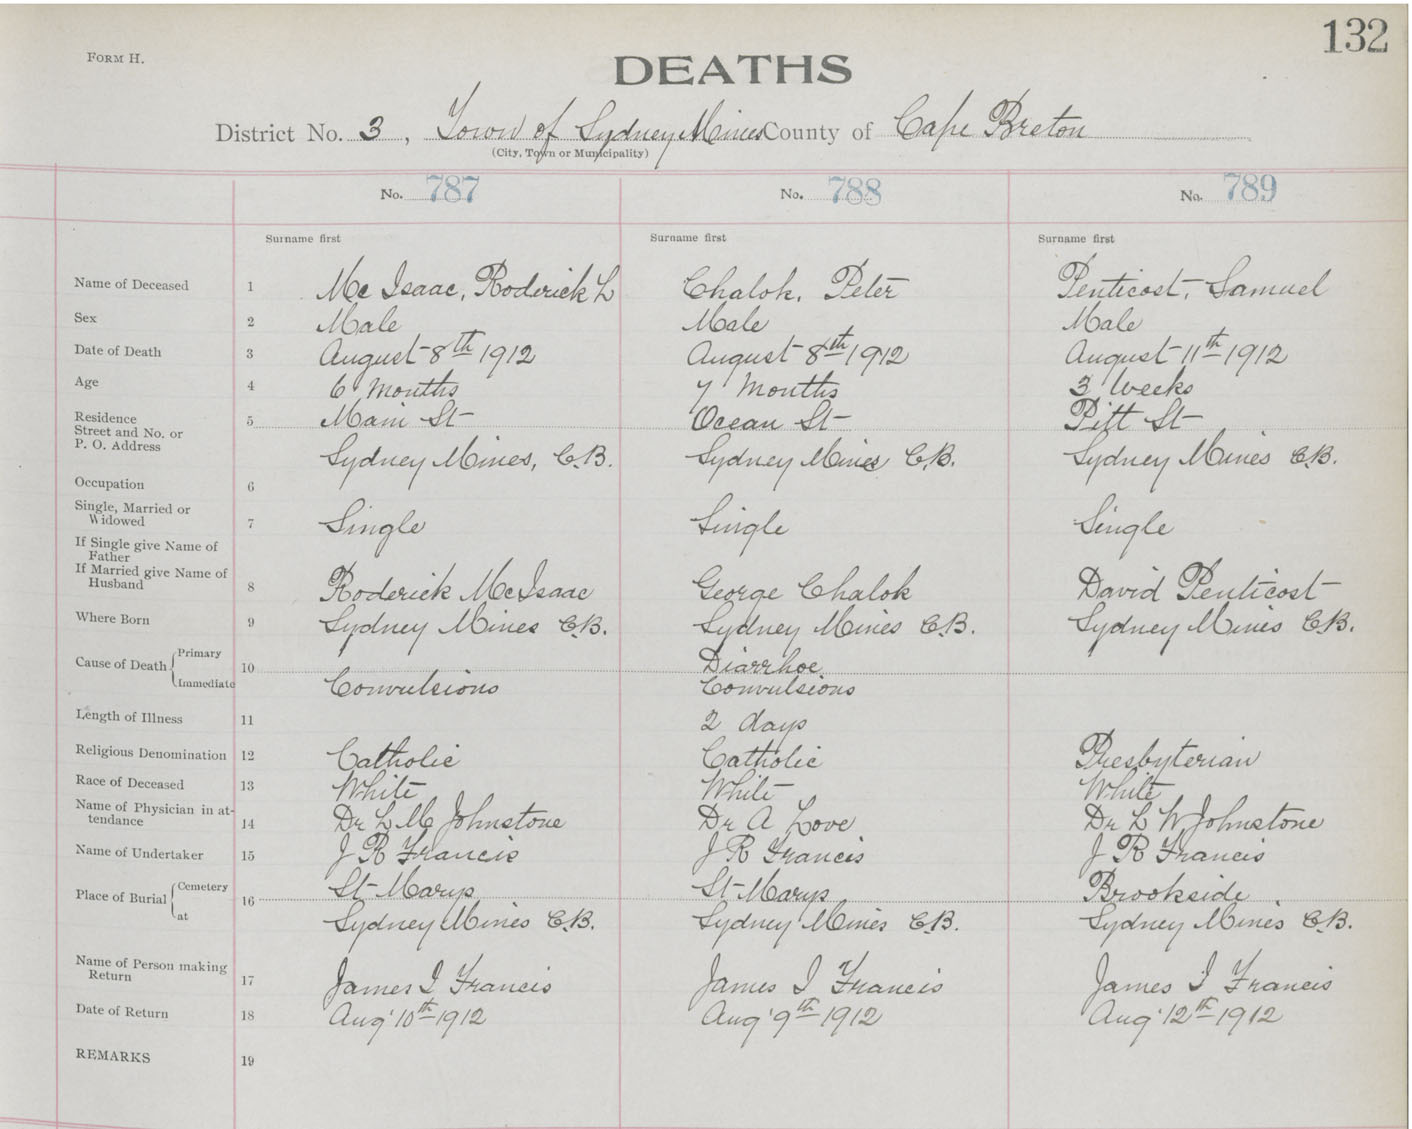 132
FORM H.
DEATHS
District No. 3, Town of Sydney Mines County of Cape Breton
(City, Town or Municipality)
No. 787 No. 788 No. 789
Surname first Surname first Surname first
Name of Deceased 1 Mc Isaac, Roderick L Chalok, Peter Penticost, Samuel
Sex 2 Male Male Male
Date of Death 3 August 8th 1912 August 8th 1912 August 11th 1912
Age 4 6 months 7 Months 3 weeks
Residence
Street and No. or 5 Main St Ocean St Pitt St
P. O. Address
Sydney Mines, C.B. Sydney Mines C.B. Sydney Mines C.B.
Occupation 6
Single, Married or
Widowed 7 Single Single Single
If Single give Name of
Father
If Married give Name of
Husband 8 Roderick McIsaac George Chalok David Penticost
Where Born 9 Sydney Mines C.B. Sydney Mines C.B. Sydney Mines C.B.
Cause of Death Primary 10 Diarrhoe
Immediate Convulsions Convulsions
Length of Illness 11 2 days
Religious Denomination 12 Catholic Catholic Presbyterian
Race of Deceased 13 White White White
Name of Physician in at-
tendance 14 Dr L M Johnstone Dr A Love Dr L W Johnstone
Name of Undertaker 15 J R Francis J R Francis J R Francis
Place of Burial Cemetery 16 St Marys St Marys Brookside
at Sydney Mines C.B. Sydney Mines C.B. Sydney Mines C.B.
Name of Person making
Return 17 James I Francis James I Francis James I Francis
Date of Return 18 Aug 10th 1912 Aug 9th 1912 Aug 12th 1912
REMARKS 19